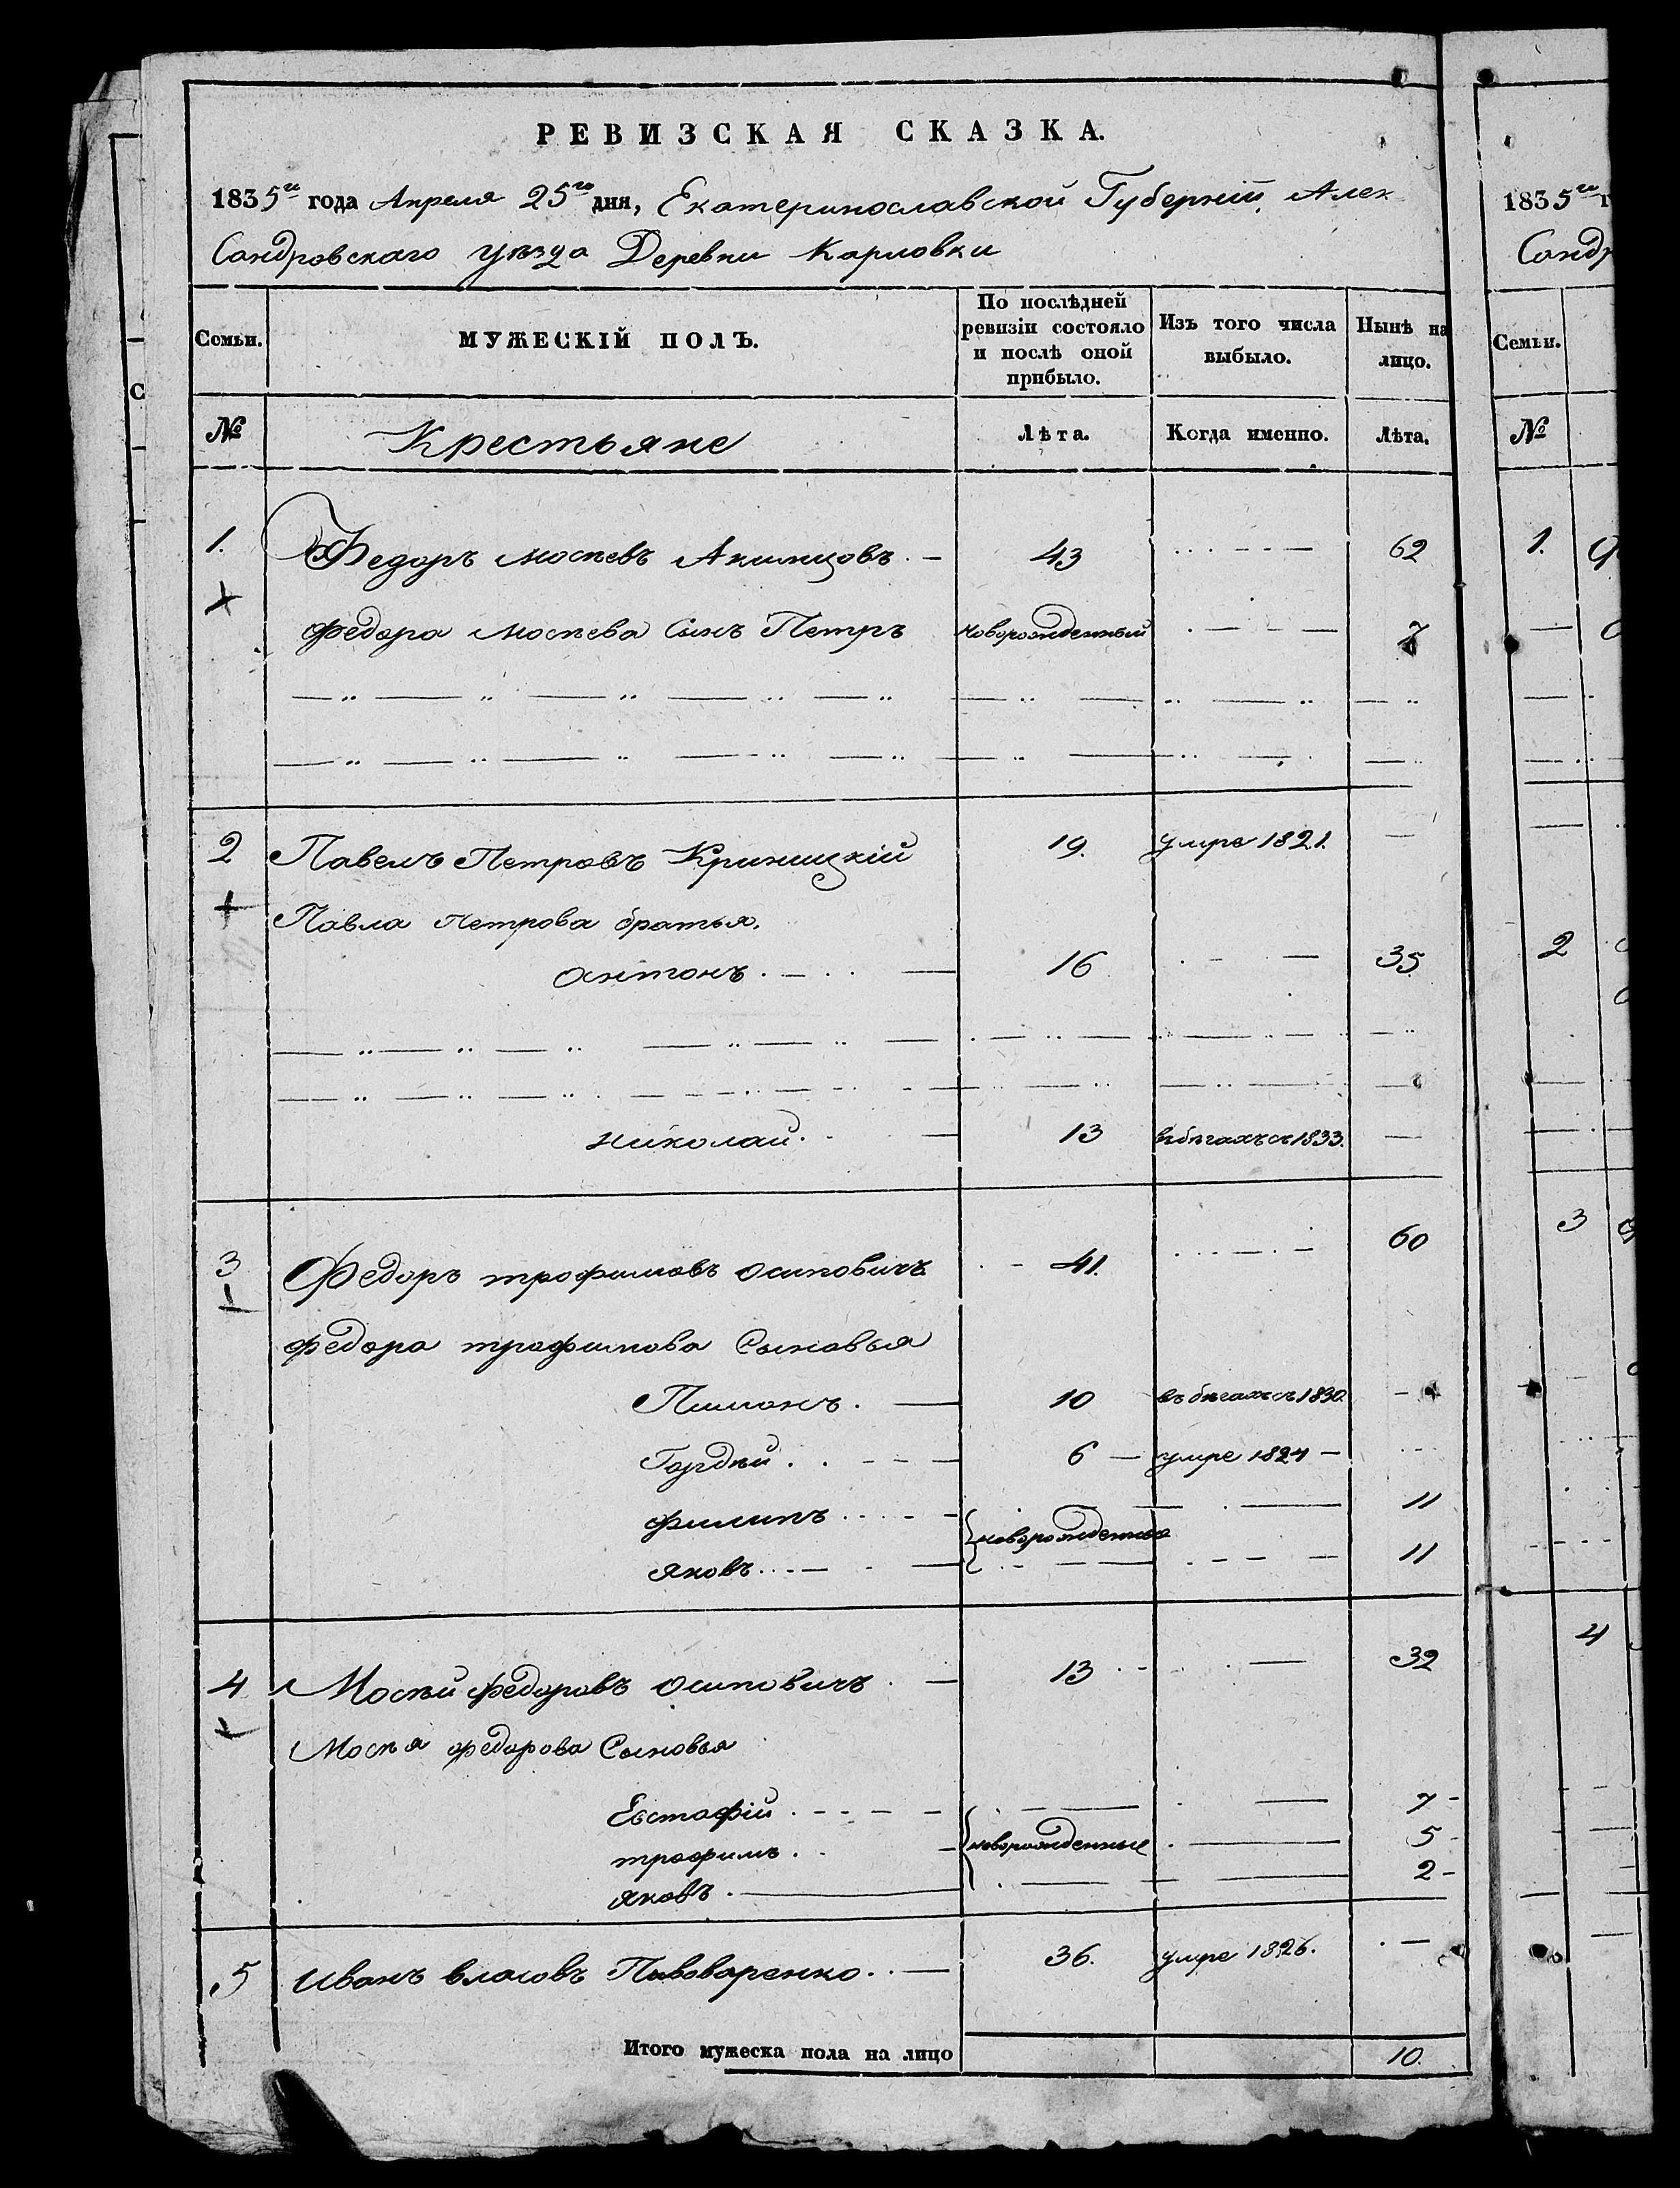 РЕВИЗСКАЯ СКАЗКА.
1835го года Апреля 25го дня, Екатеринославской Губерніи, Алек
Сандровскаго уѣзда Деревни Карловки
Семьи. МУЖЕСКІЙ ПОЛЪ. По послѣдней ревизіи состояло и послѣ оной прибыло. Изъ того числа выбыло. Нынѣ на лицо.
№ Крестьяне Лѣта. Когда именно. Лѣта.
1. Федоръ Мосѣевъ Акимцовъ. — 43 62
Федора Мосѣева Сынъ Петръ новорожденный 7
2 Павелъ Петровъ Криницкій 19. умре 1821. —
Павла Петрова братья.
антонъ 16 35
николай 13 вбѣгахъ съ 1833. —
3 Федоръ трофимовъ осиповичъ 41. 60
федора трофимова Сыновья
Пимонъ. — 10 въ бѣгахъ съ 1830. —
Гордѣй 6 — умре 1824 —
филипъ новорожденные 11
яковъ 11
4 Мосѣй федоровъ осиповичъ 13 32
Мосѣя федорова Сыновья
Евстафій 7
трофимъ новорожденные 5
яковъ 2
5 иванъ власовъ Пивоваренко. — 36. умре 1826. —
Итого мужеска пола на лицо 10.
1835го г
Санд
Семьи.
№
1.
2
3
4